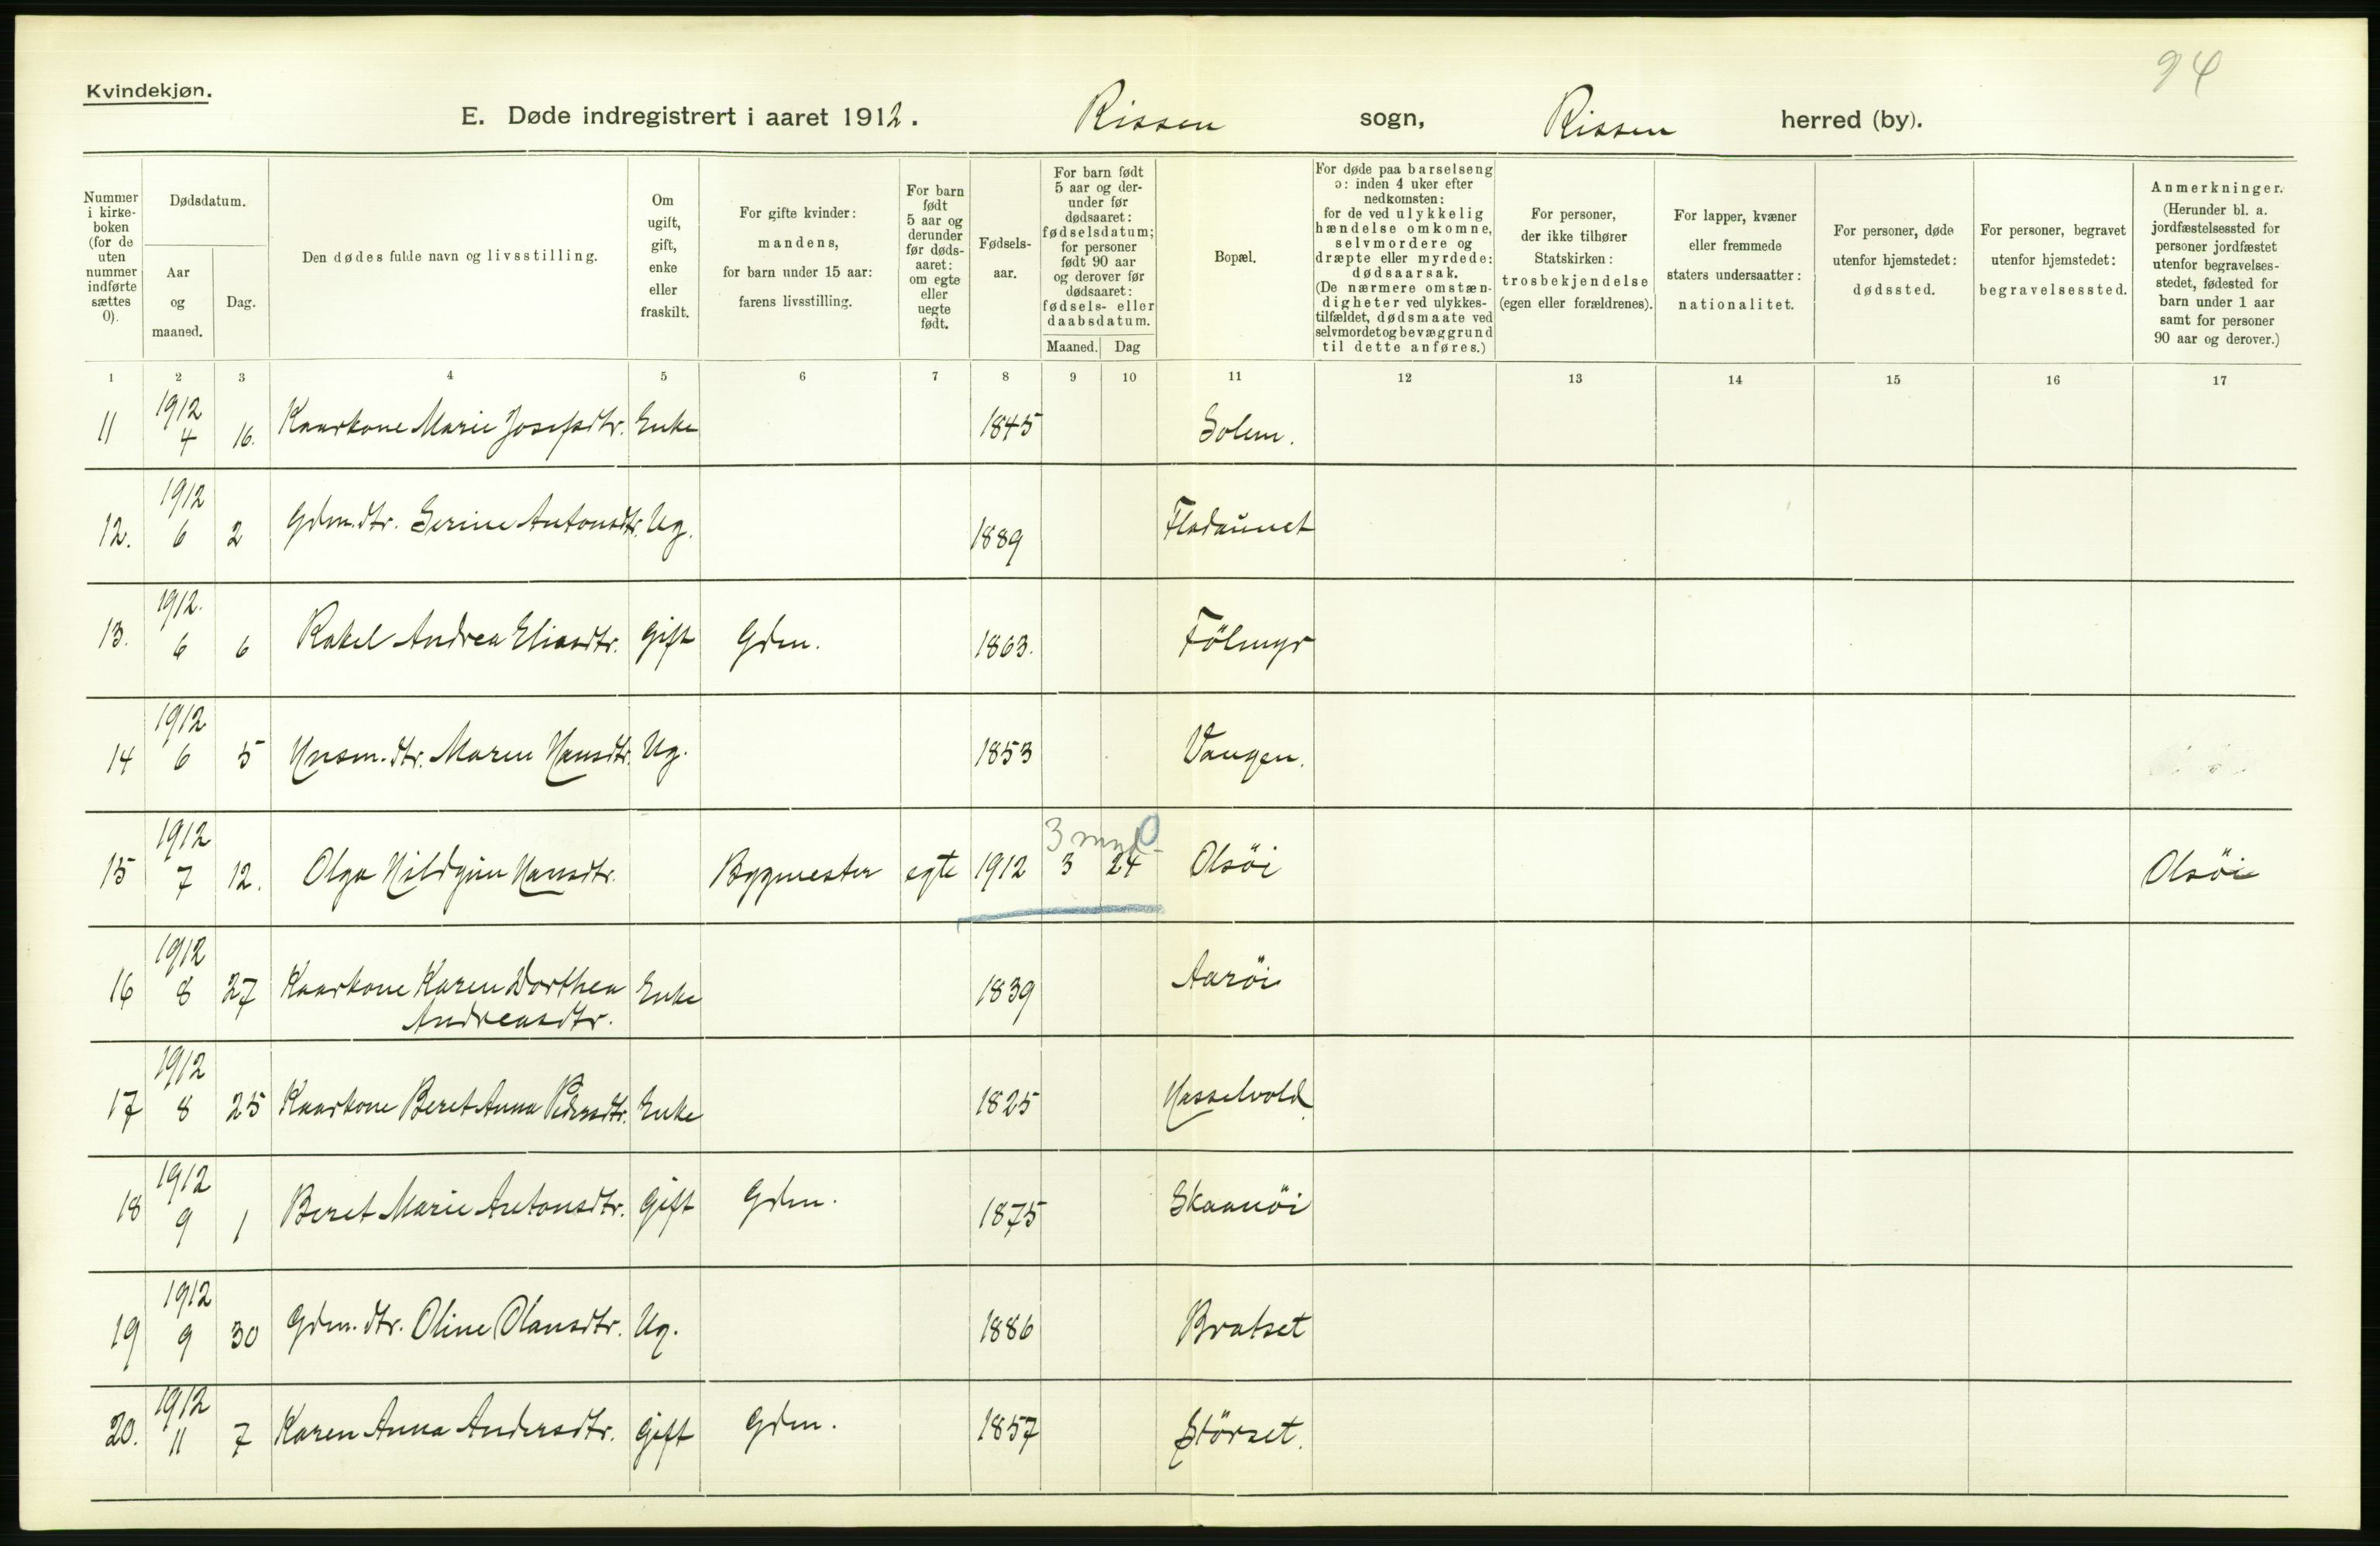 94
Kvindekjøn.
E. Døde indregistrert i aaret 1912. Rissen sogn, Rissen herred (by).
Nummer i kirke- boken (for de uten nummer indførte sættes 0).
Dødsdatum.
Aar og maaned.
Dag.
Den dødes fulde navn og livsstilling.
Om ugift, gift, enke eller fraskilt.
For gifte kvinder: mandens, for barn under 15 aar: farens livsstilling.
For barn født 5 aar og derunder før døds- aaret: om egte eller uegte født.
Fødsels- aar.
For barn født 5 aar og der- under før dødsaaret: fødselsdatum; for personer født 90 aar og derover før dødsaaret: fødsels- eller daabsdatum.
Maaned. Dag
Bopæl.
For døde paa barselseng ɔ: inden 4 uker efter nedkomsten: for de ved ulykkelig hændelse omkomne, selvmordere og dræpte eller myrdede: dødsaarsak. (De nærmere omstæn- digheter ved ulykkes- tilfældet, dødsmaate ved selvmordet og bevæggrund til dette anføres.)
For personer, der ikke tilhører Statskirken: trosbekjendelse (egen eller forældrenes).
For lapper, kvæner eller fremmede staters undersaatter: nationalitet.
For personer, døde utenfor hjemstedet: dødssted.
For personer, begravet utenfor hjemstedet: begravelsessted.
Anmerkninger. (Herunder bl. a. jordfæstelsessted for personer jordfæstet utenfor begravelses- stedet, fødested for barn under 1 aar samt for personer 90 aar og derover.)
1 2 3 4 5 6 7 8 9 10 11 12 13 14 15 16 17
11 1912 4 16. Kaarkone Marie Josefsdtr. Enke 1845 Solem.
12. 1912 6 2 Gdm. dtr. Serine Antonsdtr. Ug. 1889 Fladaunet
13. 1912. 6 6 Rakel Andrea Eliasdtr. Gift Gdm. 1863. Fölmyr
14 1912 6 5 Husm. dtr. Maren Hansdtr. Ug. 1853 Vangen.
3 mnd 0
15 1912 7 12. Olga Hildgun Hansdtr. Bygmester egte 1912 3 24 Olsöi Olsöi
16 1912 8 27 Kaarkone Karen Dorthea Enke 1839 Aaröi
Andreasdtr.
17 1912 8 25 Kaarkone Beret Anna Pedersdtr. Enke 1825 Hasselvold.
18 1912 9 1 Beret Marie Antonsdtr. Gift Gdm. 1875 Skaanöi
19 1912 9 30 Gdm. dtr. Oline Olausdtr. Ug. 1886 Bratset
20. 1912 11 7 Karen Anna Andersdtr. Gift Gdm. 1857 Störset.